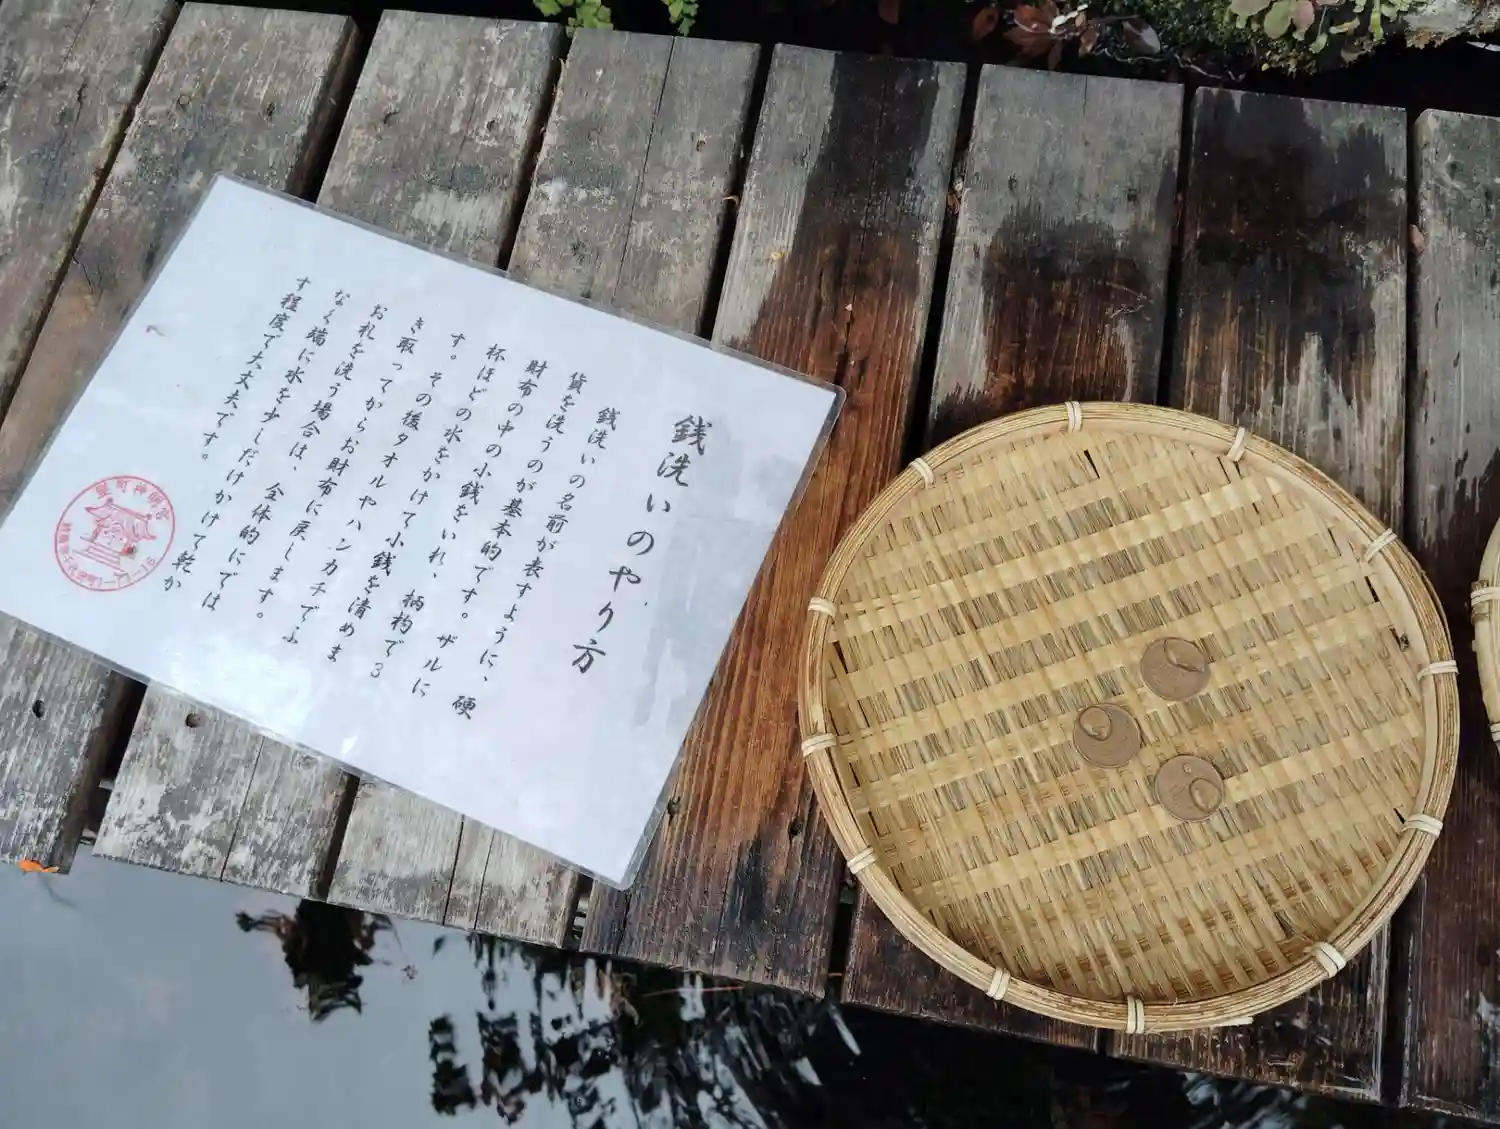 銭洗いのやり方
銭洗いの名前が表すように、硬
貨を洗うのが基本的です。ザルに
財布の中の小銭をいれ、柄杓で3
杯ほどの水をかけて小銭を清めま
す。その後タオルやハンカチでふ
き取ってからお財布に戻します。
お札を洗う場合は、全体的にでは
なく端に水を少しだけかけて乾か
す程度で大丈夫です。